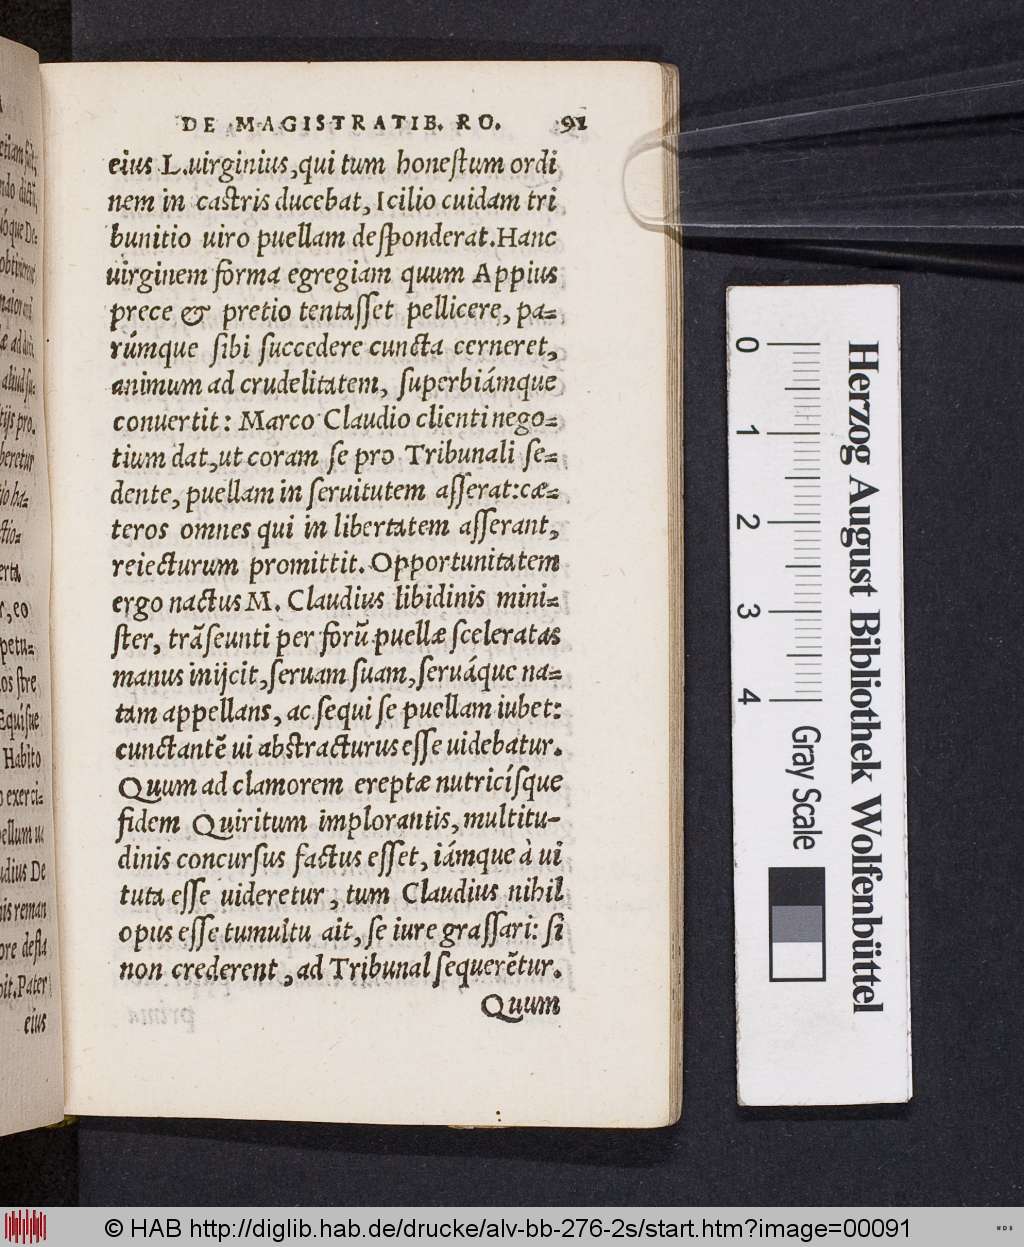 DE MAGISTRATIB. RO. 91
eius L.uirginius,qui tum honeſtum ordi
nem in caſtris ducebat, Icilio cuidam tri
bunitio uiro puellam deſponderat.Hanc
uirginem forma egregiam quum Appius
prece & pretio tentaſſet pellicere, pa=
rúmque ſibi ſuccedere cuncta cerneret,
animum ad crudelitatem, ſuperbiámque
conuertit: Marco Claudio clienti nego=
tium dat,ut coram ſe pro Tribunali ſe=
dente, puellam in ſeruitutem aſſerat:cæ=
teros omnes qui in libertatem aſſerant,
reiecturum promittit. Opportunitatem
ergo nactus M. Claudius libidinis mini=
ſter, trãſeunti per forũ puellæ ſceleratas
manus inijcit,ſeruam ſuam,ſeruáque na=
tam appellans, ac ſequi ſe puellam iubet:
cunctantẽ ui abſtracturus eſſe uidebatur.
Quum ad clamorem ereptæ nutricíſque
fidem Quiritum implorantis, multitu-
dinis concurſus factus eſſet, iámque à ui
tuta eſſe uideretur, tum Claudius nihil
opus eſſe tumultu ait, ſe iure graſſari: ſi
non crederent, ad Tribunal ſequerẽtur.
Quum
etiam
De=
tijs pro.
ſtre
Habito
exerci=
De
nis reman
Pater
eius
0 1 2 3 4
Gray Scale
Herzog August Bibliothek Wolfenbüttel
© HAB http://diglib.hab.de/drucke/alv-bb-276-2s/start.htm?image=00091